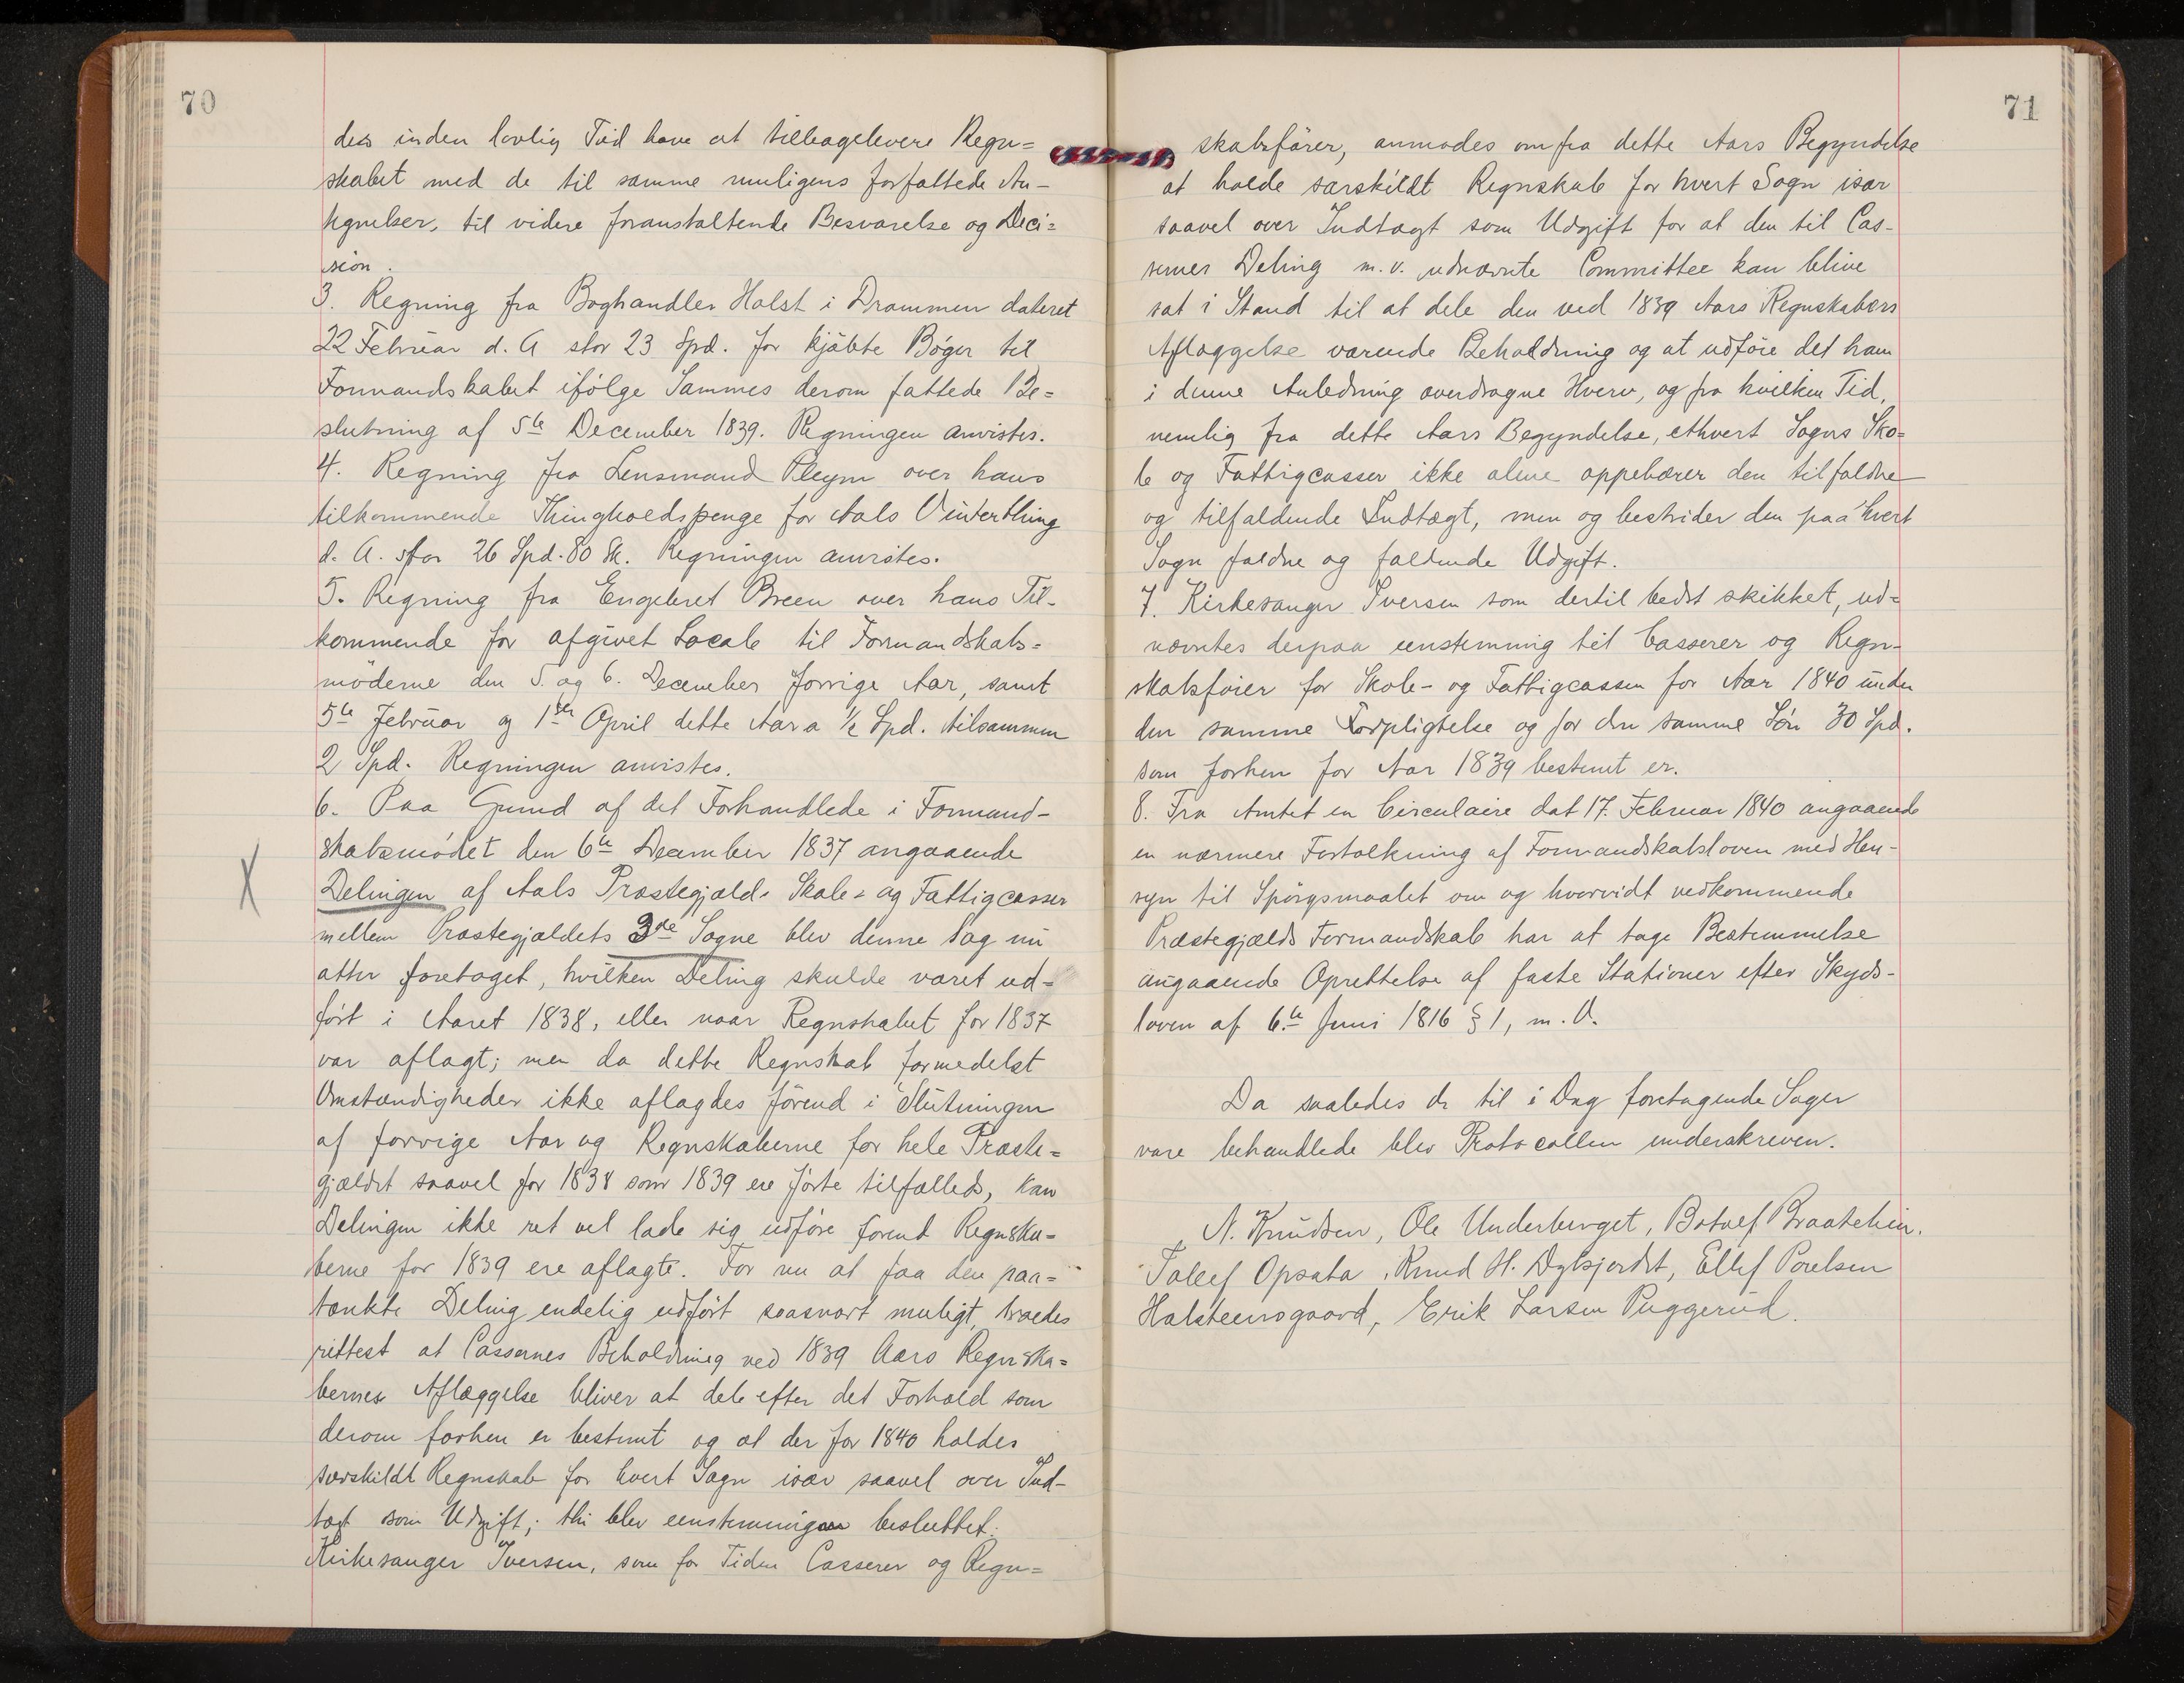 70
des inden lovlig Tid have at tilbagelevere Regn=
skabet med de til samme muligens forfattede An-
tegnelser, til videre foranstaltende Besvarelse og Deci=
sion.
3. Regning fra Boghandler Holst i Drammen dateret
22 Februar d. A stor 23 Spd. for kjøbte Bøger til
Formandskabet ifølge Sammes derom fattede Be=
slutning af 5te December 1839. Regningen anvistes.
4. Regning fra Lensmand Pleym over hans
tilkommende Thingholdspenge for Aals Vinterthing
d. A. stor 26 Spd. 80 Sk. Regningen anvistes.
5. Regning fra Engebret Breen over hans Til-
kommende for afgivet Locale til Formandskabs=
møderne den 5. og 6. December forrige Aar, samt
5te Februar og 1ste April dette Aar a ½ Spd. tilsammen
2 Spd. Regningen anvistes.
6. Paa Grund af det Forhandlede i Formand-
skabsmødet den 6te December 1837 angaaende
X Delingen af Aals Præstegjælds Skole- og Fattigcasser
mellem Præstegjældets 3de Sogne blev denne Sag nu
atter foretaget, hvilken Deling skulde været ud-
ført i Aaret 1838, eller naar Regnskabet for 1837
var aflagt; men da dette Regnskab formedelst
Omstændigheder ikke aflagdes førend i Slutningen
af forrige Aar og Regnskaberne for hele Præste=
gjældet saavel for 1838 som 1839 ere førte tilfælleds, kan
Delingen ikke ret vel lade sig udføre førend Regnska=
berne for 1839 ere aflagte. For nu at faa den paa=
tænkte Deling endelig udført saasnart muligt, troedes
rettest at Cassernes Beholdning ved 1839 Aars Regnska=
bernes Aflæggelse bliver at dele efter det Forhold som
derom forhen er bestemt og at der for 1840 holdes
særskildt Regnskab for hvert Sogn især saavel over Ind-
tægt som Udgift; thi blev eenstemmigen besluttet:
Kirkesanger Iversen, som for Tiden Casserer og Regn=
71
skabsfører, anmodes om fra dette Aars Begyndelse
at holde særskildt Regnskab for hvert Sogn især
saavel over Indtægt som Udgift for at den til Cas-
sernes Deling m.v. udnævnte Committee kan blive
sat i Stand til at dele den ved 1839 Aars Regnskabers
Aflæggelse værende Beholdning og at udføre det ham
i denne Anledning overdragne Hverv, og fra hvilken Tid,
nemlig fra dette Aars Begyndelse, ethvert Sogns Sko=
le og Fattigcasser ikke alene oppebærer den tilfaldne
og tilfaldende Indtægt, men og bestrider den paa hvert
Sogn faldne og faldende Udgift.
7. Kirkesanger Iversen som dertil bedst skikket, ud=
nævntes derpaa eenstemmig til Casserer og Regn-
skabsfører for Skole- og Fattigcassen for Aar 1840 under
den samme Forpligtelse og for den samme Løn 30 Spd.
som forhen for Aar 1839 bestemt er.
8. Fra Amtet en Circulaire dat 17. Februar 1840 angaaende
en nærmere Fortolkning af Formandskabsloven med Hen-
syn til Spørgsmaalet om og hvorvidt vedkommende
Præstegjælds Formandskab har at tage Bestemmelse
angaaende Oprettelse af faste Stationer efter Skyds-
loven af 6.te Juni 1816 § 1, m. V.
Da saaledes de til i Dag foretagende Sager
vare behandlede blev Protocollen underskreven.
N. Knudsen, Ole Underberget, Botolf Braatelien.
Tollef Opsata, Knud H. Dyksjordet, Ellef Povelsen
Halsteensgaard, Erik Larsen Puggerud.